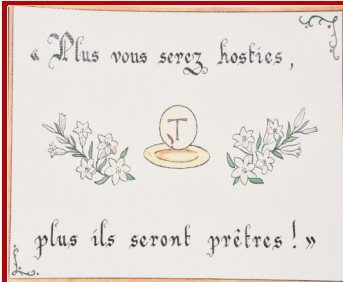 « Plus vous serez hosties,
plus ils seront prêtres ! »